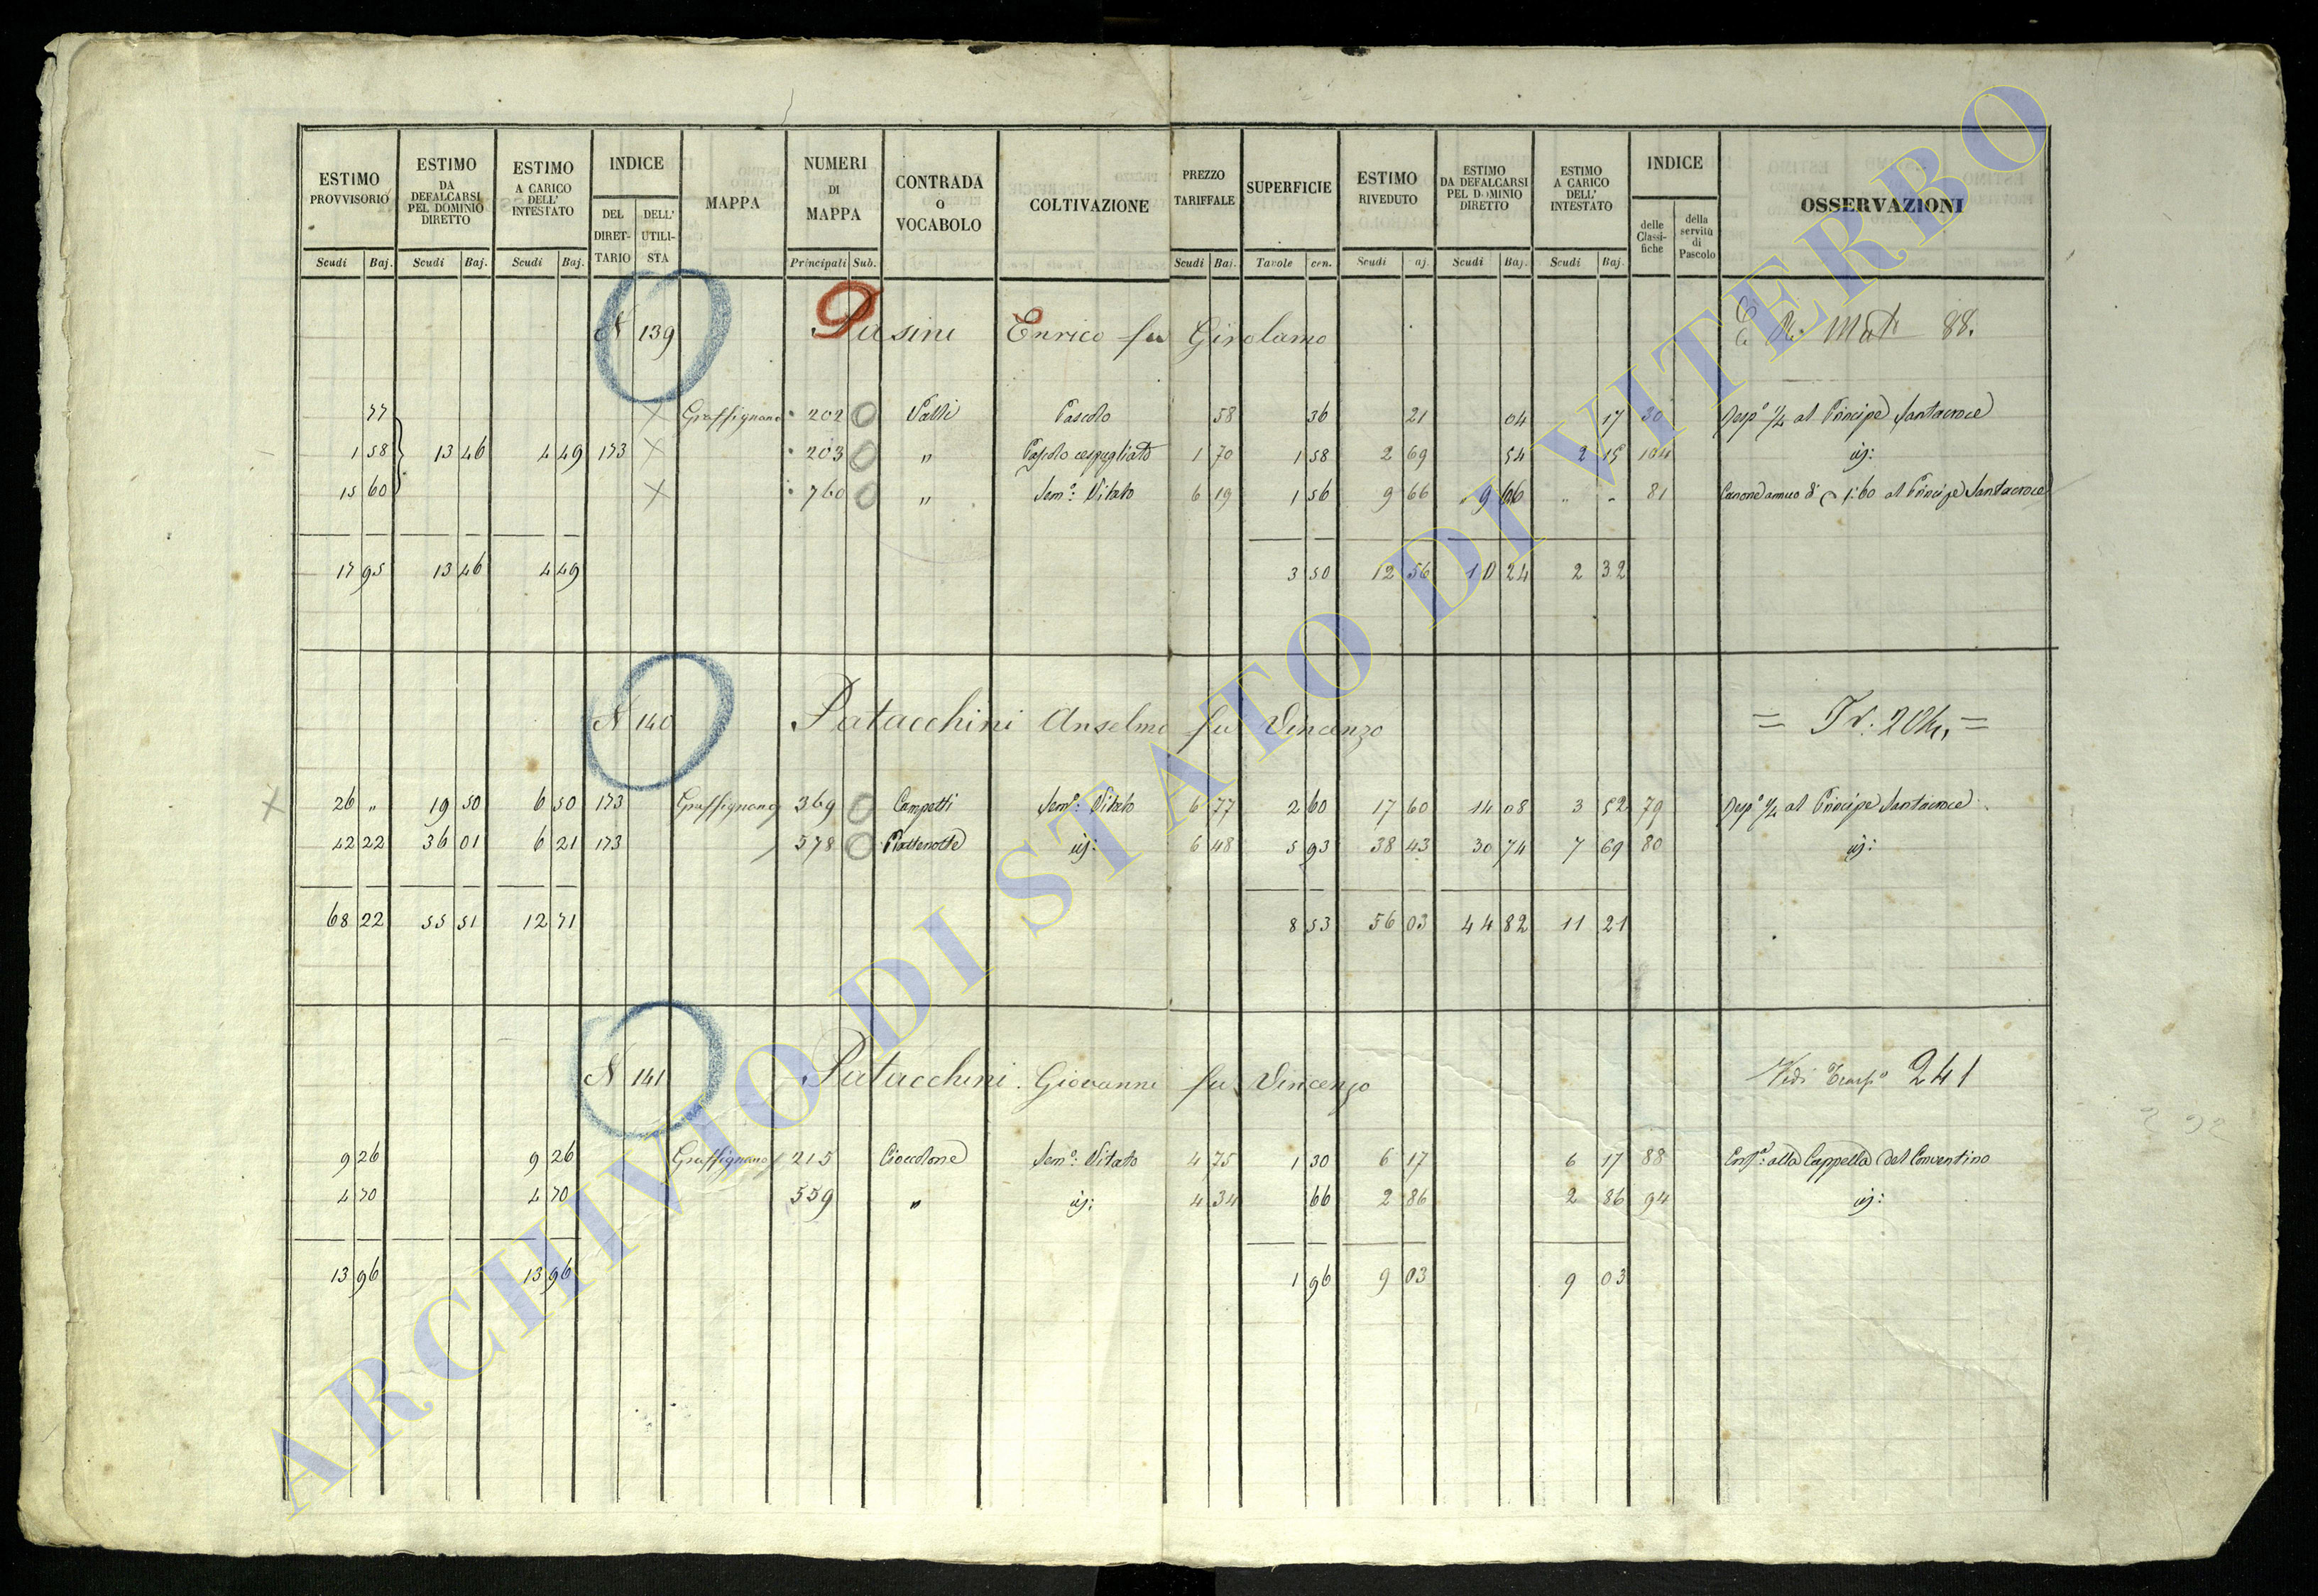 ESTIMO PROVVISORIO ESTIMO DA DEFALCARSI PEL DOMINIO DIRETTO ESTIMO A CARICO DELL' INTESTATO INDICE DEL DIRET-TARIO DELL' UTILI-STA MAPPA NUMERI DI MAPPA CONTRADA O VOCABOLO COLTIVAZIONE PREZZO TARIFFALE SUPERFICIE ESTIMO RIVEDUTO ESTIMO DA DEFALCARSI PEL DOMINIO DIRETTO ESTIMO A CARICO DELL' INTESTATO INDICE delle Classi-fiche della servitù di Pascolo OSSERVAZIONI
Scudi Baj. Scudi Baj. Scudi Baj. Principali Sub. Scudi Baj. Tavole cen. Scudi aj. Scudi Baj. Scudi Baj.
N 139 Pasini Enrico fu Girolamo 88.
77 Graffignano 202 Valli Pascolo 58 36 21 04 17 30 Risp.ª ¼ al Principe Santacroce
1 58 13 46 4 49 173 203 " Pascolo cespugliato 1 70 1 58 2 69 54 2 15 104 id:
15 60 760 " Sem.º: Vitato 6 19 1 56 9 66 9 66 " " 81 Canone annuo di 1:60 al Principe Santacroce
17 95 13 46 4 49 3 50 12 56 10 24 2 32
N 140 Patacchini Anselmo fu Vincenzo
26 " 19 50 6 50 173 Graffignano 369 Campetti Sem.º: Vitato 6 77 2 60 17 60 14 08 3 52 79 Risp.ª ¼ al Principe Santacroce
42 22 36 01 6 21 173 578 id: 6 48 5 93 38 43 30 74 7 69 80 id:
68 22 55 51 12 71 8 53 56 03 44 82 11 21
N 141 Patacchini Giovanni fu Vincenzo Vedi 241
9 26 9 26 Graffignano 215 Cioccolone Sem.º: Vitato 4 75 1 30 6 17 6 17 88 alla Cappella del Conventino
4 70 4 70 559 " id: 4 34 66 2 86 2 86 94 id:
13 96 13 96 1 96 9 03 9 03
ARCHIVIO DI STATO DI VITERBO